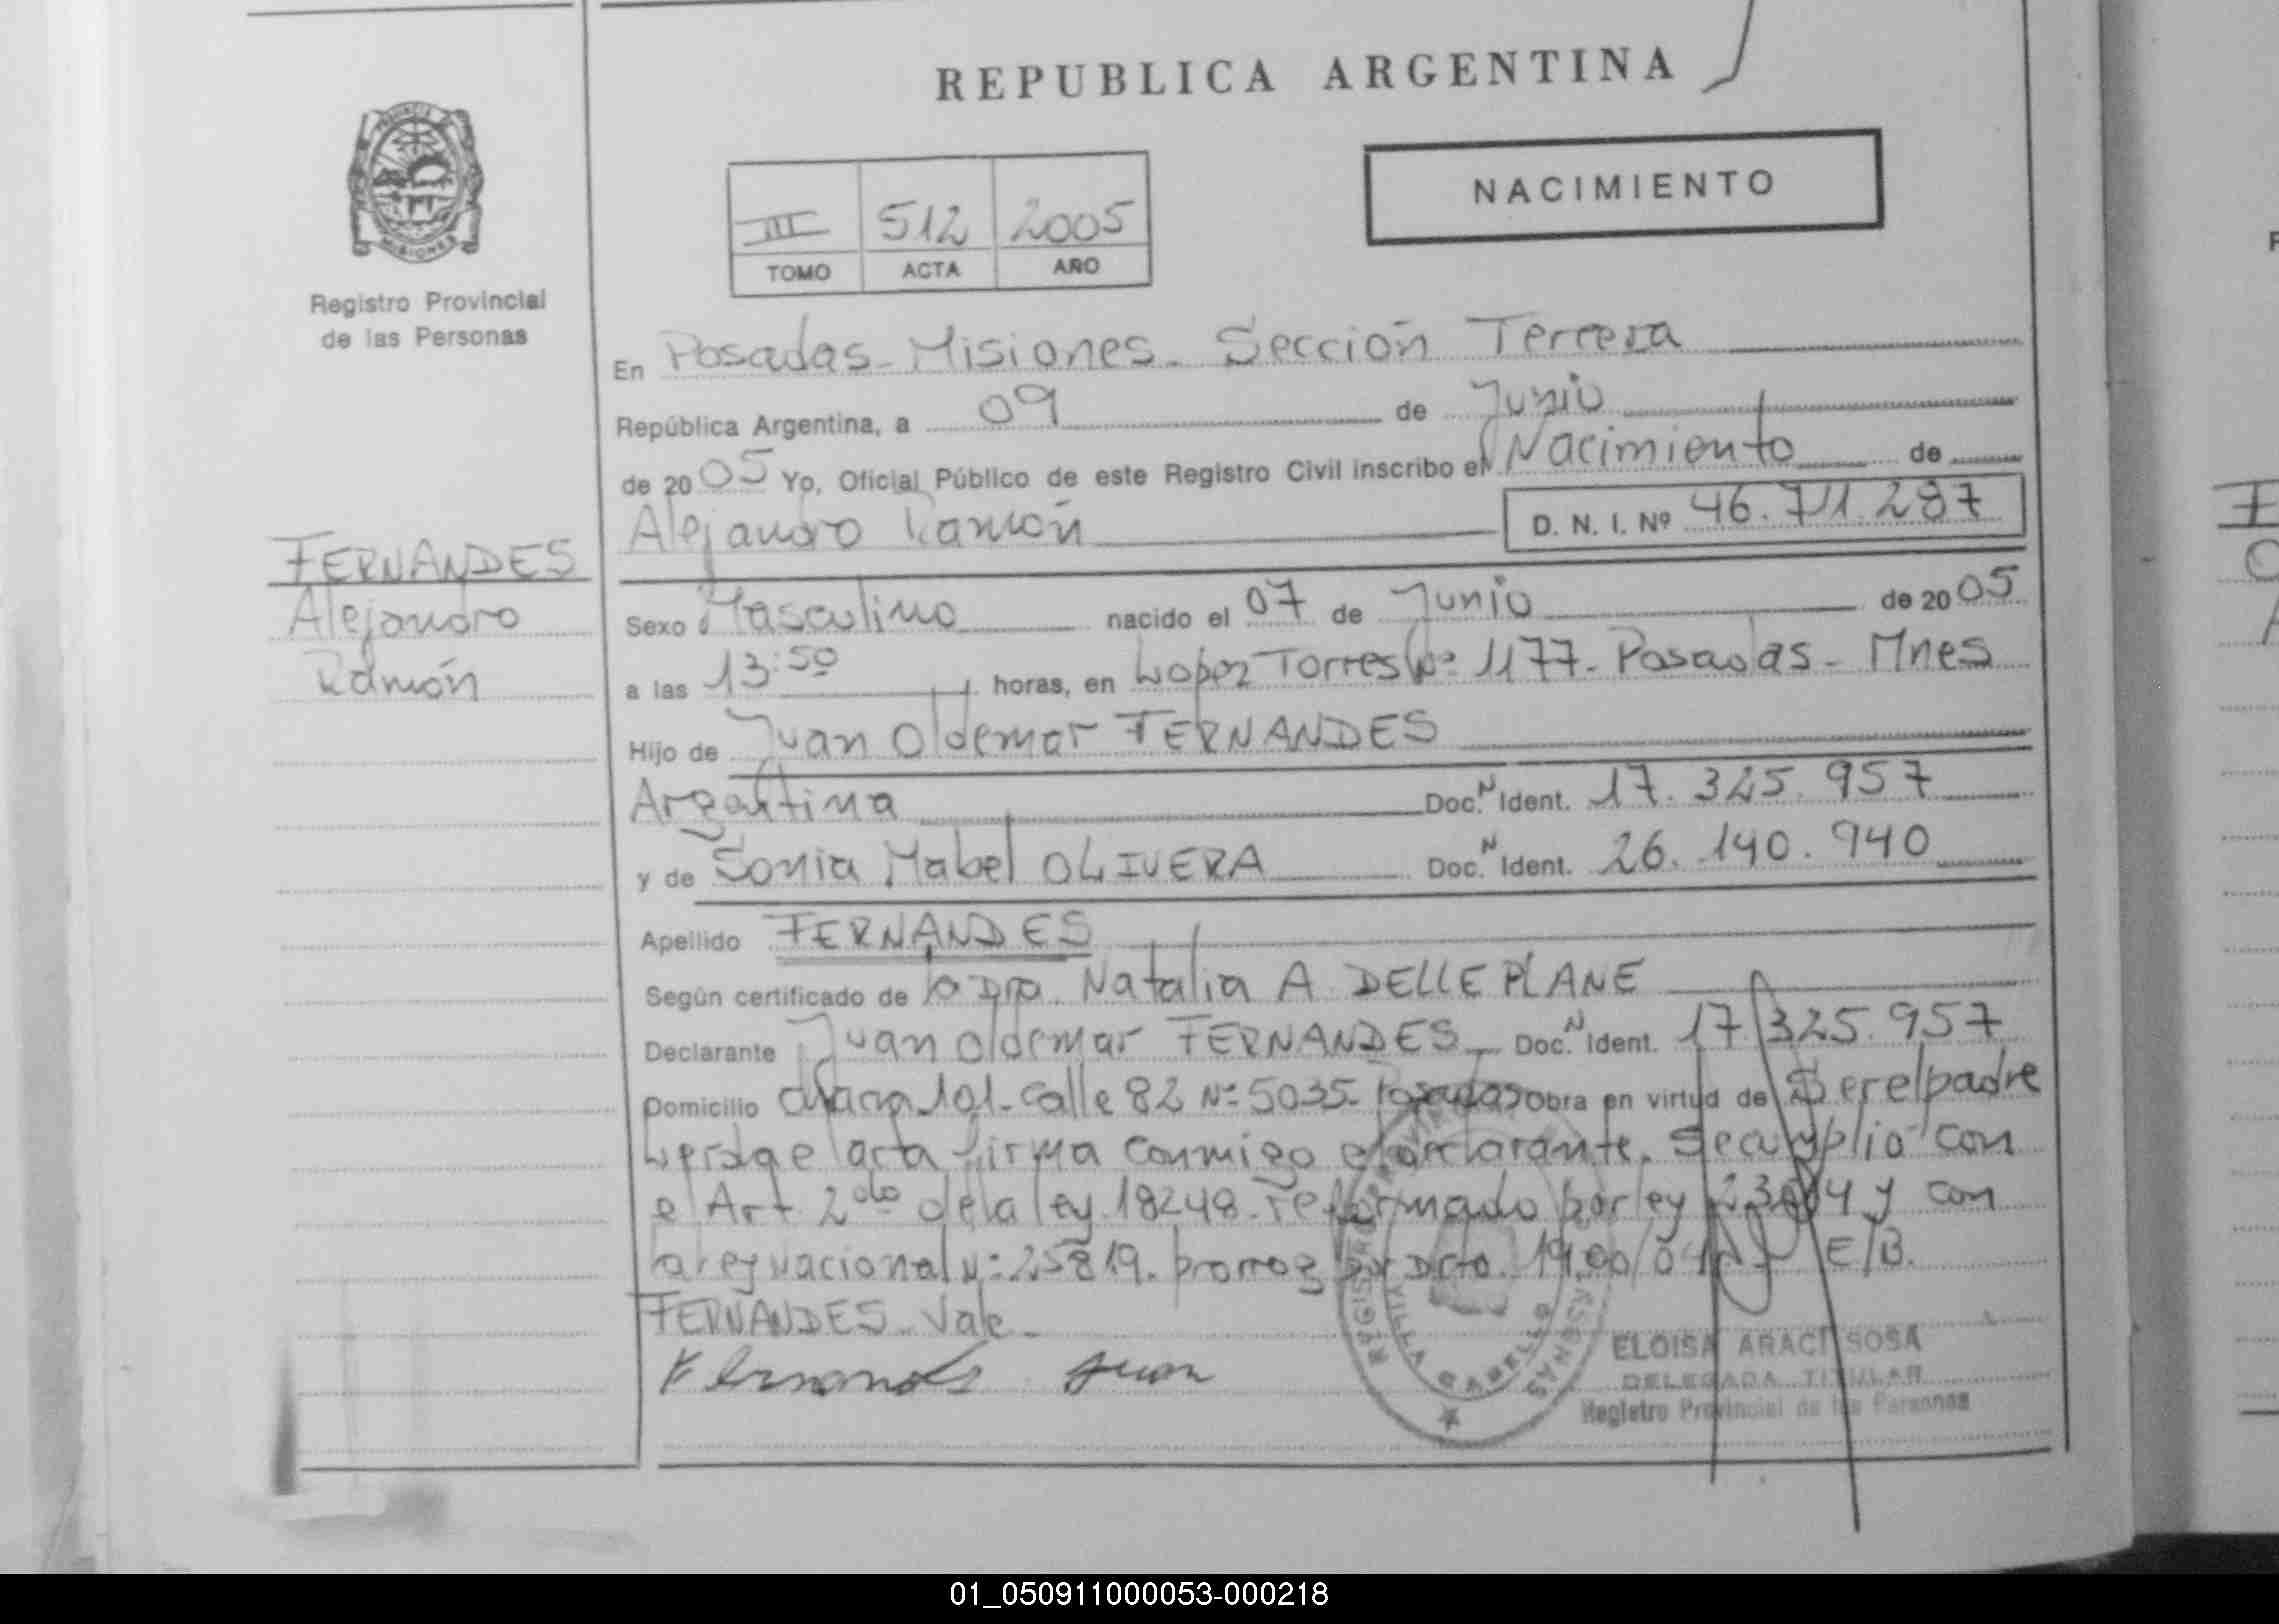 REPUBLICA ARGENTINA
NACIMIENTO
III 512 2005
TOMO ACTA AÑO
PROVINCIA
MISIONES
Registro Provincial
de las Personas
En Posadas - Misiones - Sección Tercera
República Argentina, a 09 de Junio
de 2005 Yo, Oficial Público de este Registro Civil inscribo el Nacimiento de
Alejandro Ramón D. N. I. Nº 46.711.287
FERNANDES
Alejandro
Ramón
Sexo Masculino nacido el 07 de Junio de 2005
a las 13:50 horas, en Lopez Torres Nº 1177 - Posadas - Mnes
Hijo de Juan Oldemar FERNANDES
Argentina Doc. N Ident. 17.325.957
y de Sonia Mabel OLIVERA Doc. N Ident. 26.140.940
Apellido FERNANDES
Según certificado de la Dra. Natalia A. DELLEPLANE
Declarante Juan Oldemar FERNANDES Doc. N Ident. 17.325.957
Domicilio Chacra 101 - Calle 82 Nº 5035 - Posadas Obra en virtud de Ser el padre
acta firma conmigo el declarante. Se cumplio con
el Art 2do de la ley 18248 - reformado por ley y con
la ley nacional Nº 25819. prorrog por Dcto. E/B.
FERNANDES - Vale -
Fernandes Juan
REGISTRO PROVINCIAL PERSONAS
VILLA CABELLO
ELOISA ARACI SOSA
DELEGADA TITULAR
Registro Provincial de las Personas
01_050911000053-000218